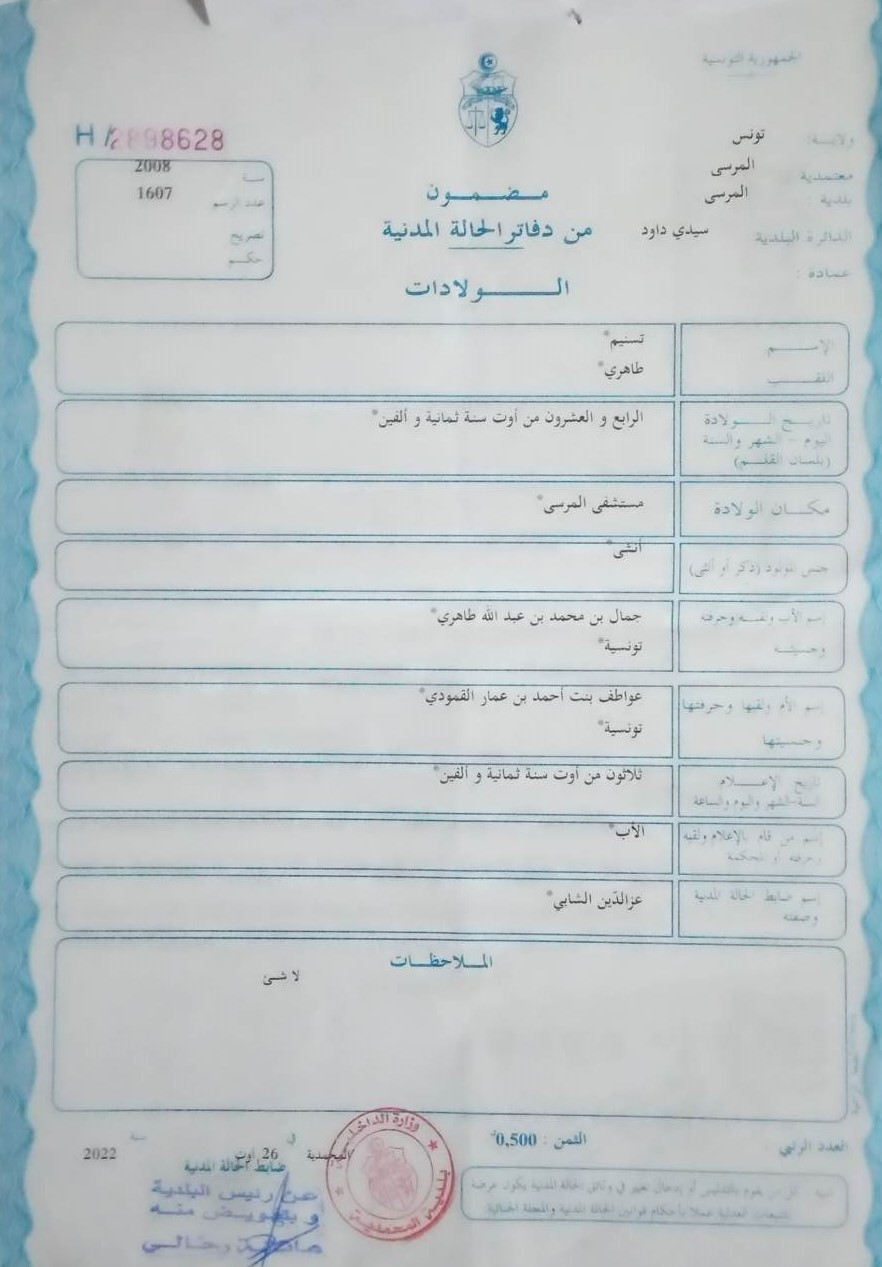 الجمهورية التونسية
ولاية: تونس
معتمدية : المرسى
بلدية : المرسى
الدائرة البلدية سيدي داود
عمادة :
H 2898628
سنة 2008
عدد الرسم 1607
تصريح
حكم
مضمون
من دفاتر الحالة المدنية
الولادات
الإسم تسنيم*
اللقب طاهري*
تاريخ الولادة
اليوم - الشهر والسنة
(بلسان القلم)
الرابع و العشرون من أوت سنة ثمانية و ألفين*
مكان الولادة مستشفى المرسى*
جنس المولود (ذكر أو أنثى) أنثى*
إسم الأب ولقبه وحرفته جمال بن محمد بن عبد الله طاهري*
وجنسيته تونسية*
إسم الأم ولقبها وحرفتها عواطف بنت أحمد بن عمار القمودي*
وجنسيتها تونسية*
تاريخ الإعلام ثلاثون من أوت سنة ثمانية و ألفين*
السنة-الشهر واليوم والساعة
إسم من قام بالإعلام ولقبه الأب*
وحرفته أو المحكمة
إسم ضابط الحالة المدنية عزالدّين الشابي*
وصفته
الملاحظات
لا شئ
العدد الرتبي
الثمن : 0,500
المحمدية في 26 أوت سنة 2022
ضابط الحالة المدنية
عن رئيس البلدية
و بتفويض منه
وزارة الداخلية
بلدية المحمدية
تنبيه : كل من يقوم بالتدليس أو بإدخال تغيير في وثائق الحالة المدنية يكون عرضة
للتتبعات العدلية عملا بأحكام قوانين الحالة المدنية والمجلة الجنائية